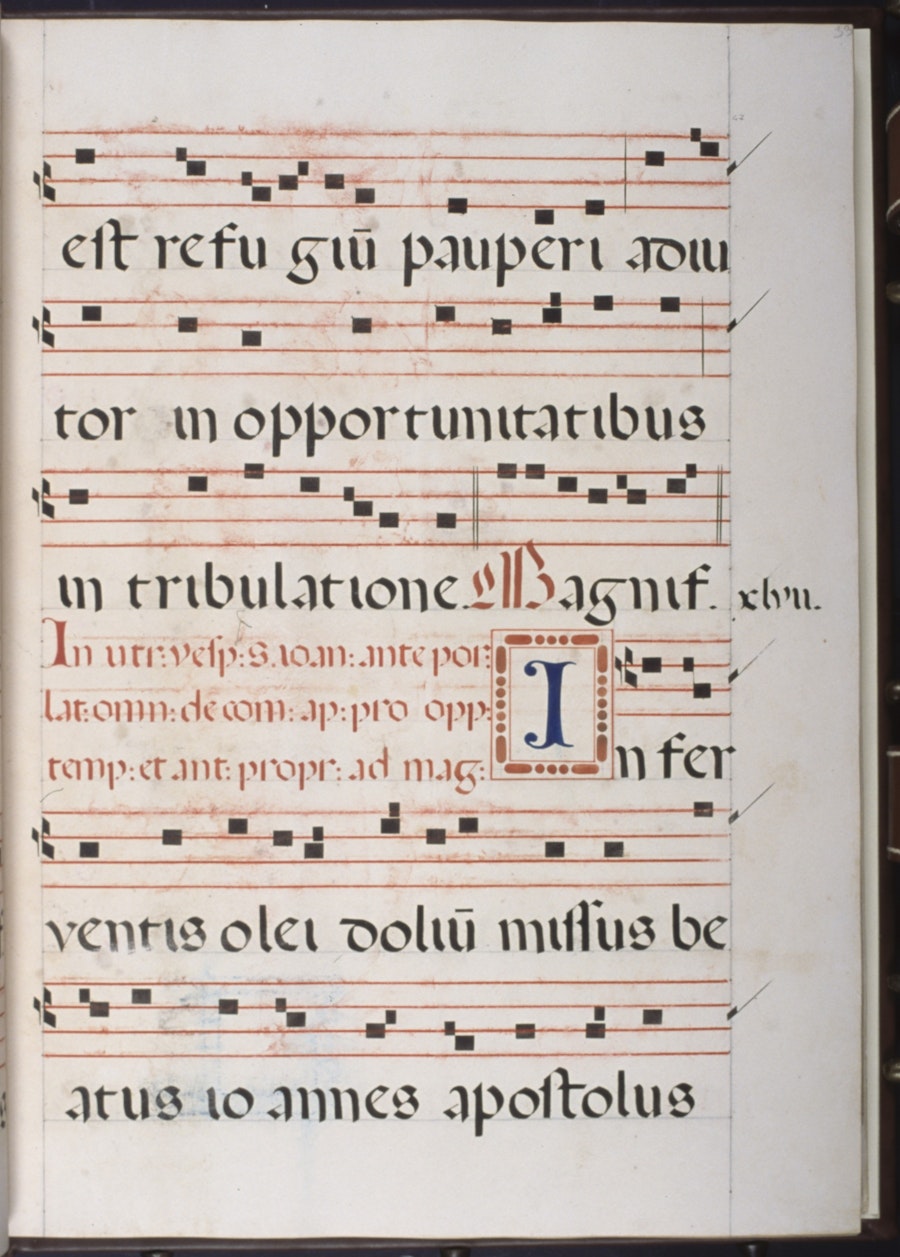 est refu giū pauperi adiu
tor in opportunitatibus
in tribulatione. Magnif. xlvii.
In utr: vesp: s. ioan: ante por:
lat: omn: de com: ap: pro opp:
temp: et ant: propr: ad mag:
In fer
ventis olei doliū missus be
atus io annes apostolus